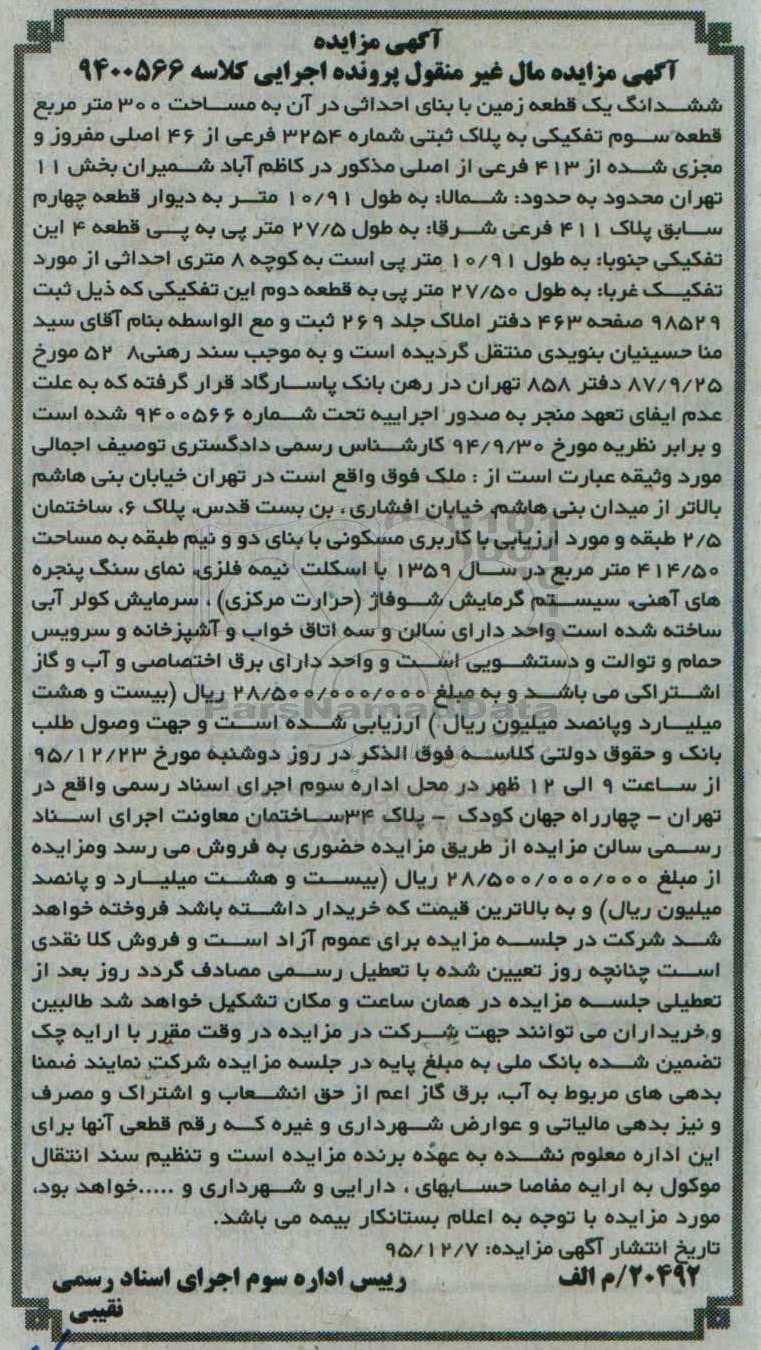 آگهی مزایده
آگهی مزایده مال غیر منقول پرونده اجرایی کلاسه ۹۴۰۰۵۶۶
ششدانگ یک قطعه زمین با بنای احداثی در آن به مساحت ۳۰۰ متر مربع
قطعه سوم تفکیکی به پلاک ثبتی شماره ۳۲۵۴ فرعی از ۴۶ اصلی مفروز و
مجزی شده از ۴۱۳ فرعی از اصلی مذکور در کاظم آباد شمیران بخش ۱۱
تهران محدود به حدود: شمالا: به طول ۱۰/۹۱ متر به دیوار قطعه چهارم
سابق پلاک ۴۱۱ فرعی شرقا: به طول ۲۷/۵ متر پی به پی قطعه ۴ این
تفکیکی جنوبا: به طول ۱۰/۹۱ متر پی است به کوچه ۸ متری احداثی از مورد
تفکیک غربا: به طول ۲۷/۵۰ متر پی به قطعه دوم این تفکیکی که ذیل ثبت
۹۸۵۲۹ صفحه ۴۶۳ دفتر املاک جلد ۲۶۹ ثبت و مع الواسطه بنام آقای سید
منا حسینیان بنویدی منتقل گردیده است و به موجب سند رهنی۸ ۵۲ مورخ
۸۷/۹/۲۵ دفتر ۸۵۸ تهران در رهن بانک پاسارگاد قرار گرفته که به علت
عدم ایفای تعهد منجر به صدور اجراییه تحت شماره ۹۴۰۰۵۶۶ شده است
و برابر نظریه مورخ ۹۴/۹/۳۰ کارشناس رسمی دادگستری توصیف اجمالی
مورد وثیقه عبارت است از : ملک فوق واقع است در تهران خیابان بنی هاشم
بالاتر از میدان بنی هاشم، خیابان افشاری ، بن بست قدس، پلاک ۶، ساختمان
۲/۵ طبقه و مورد ارزیابی با کاربری مسکونی با بنای دو و نیم طبقه به مساحت
۴۱۴/۵۰ متر مربع در سال ۱۳۵۹ با اسکلت نیمه فلزی، نمای سنگ پنجره
های آهنی، سیستم گرمایش شوفاژ (حرارت مرکزی) ، سرمایش کولر آبی
ساخته شده است واحد دارای سالن و سه اتاق خواب و آشپزخانه و سرویس
حمام و توالت و دستشویی است و واحد دارای برق اختصاصی و آب و گاز
اشتراکی می باشد و به مبلغ ۲۸/۵۰۰/۰۰۰/۰۰۰ ریال (بیست و هشت
میلیارد وپانصد میلیون ریال ) ارزیابی شده است و جهت وصول طلب
بانک و حقوق دولتی کلاسه فوق الذکر در روز دوشنبه مورخ ۹۵/۱۲/۲۳
از ساعت ۹ الی ۱۲ ظهر در محل اداره سوم اجرای اسناد رسمی واقع در
تهران – چهارراه جهان کودک – پلاک ۳۴ساختمان معاونت اجرای اسناد
رسمی سالن مزایده از طریق مزایده حضوری به فروش می رسد ومزایده
از مبلغ ۲۸/۵۰۰/۰۰۰/۰۰۰ ریال (بیست و هشت میلیارد و پانصد
میلیون ریال) و به بالاترین قیمت که خریدار داشته باشد فروخته خواهد
شد شرکت در جلسه مزایده برای عموم آزاد است و فروش کلا نقدی
است چنانچه روز تعیین شده با تعطیل رسمی مصادف گردد روز بعد از
تعطیلی جلسه مزایده در همان ساعت و مکان تشکیل خواهد شد طالبین
و خریداران می توانند جهت شرکت در مزایده در وقت مقرر با ارایه چک
تضمین شده بانک ملی به مبلغ پایه در جلسه مزایده شرکت نمایند ضمنا
بدهی های مربوط به آب، برق گاز اعم از حق انشعاب و اشتراک و مصرف
و نیز بدهی مالیاتی و عوارض شهرداری و غیره که رقم قطعی آنها برای
این اداره معلوم نشده به عهده برنده مزایده است و تنظیم سند انتقال
موکول به ارایه مفاصا حسابهای ، دارایی و شهرداری و .....خواهد بود،
مورد مزایده با توجه به اعلام بستانکار بیمه می باشد.
تاریخ انتشار آگهی مزایده: ۹۵/۱۲/۷
۲۰۴۹۲/م الف رییس اداره سوم اجرای اسناد رسمی
نقیبی
ParsNamadData